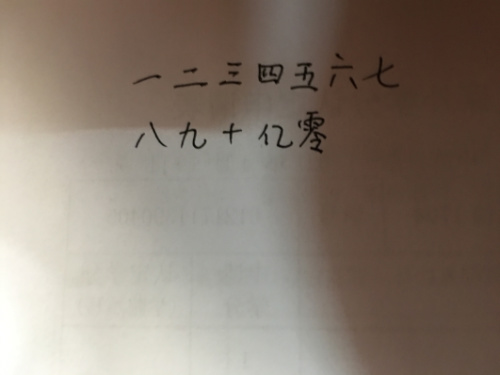 一二三四五六七
八九十亿零